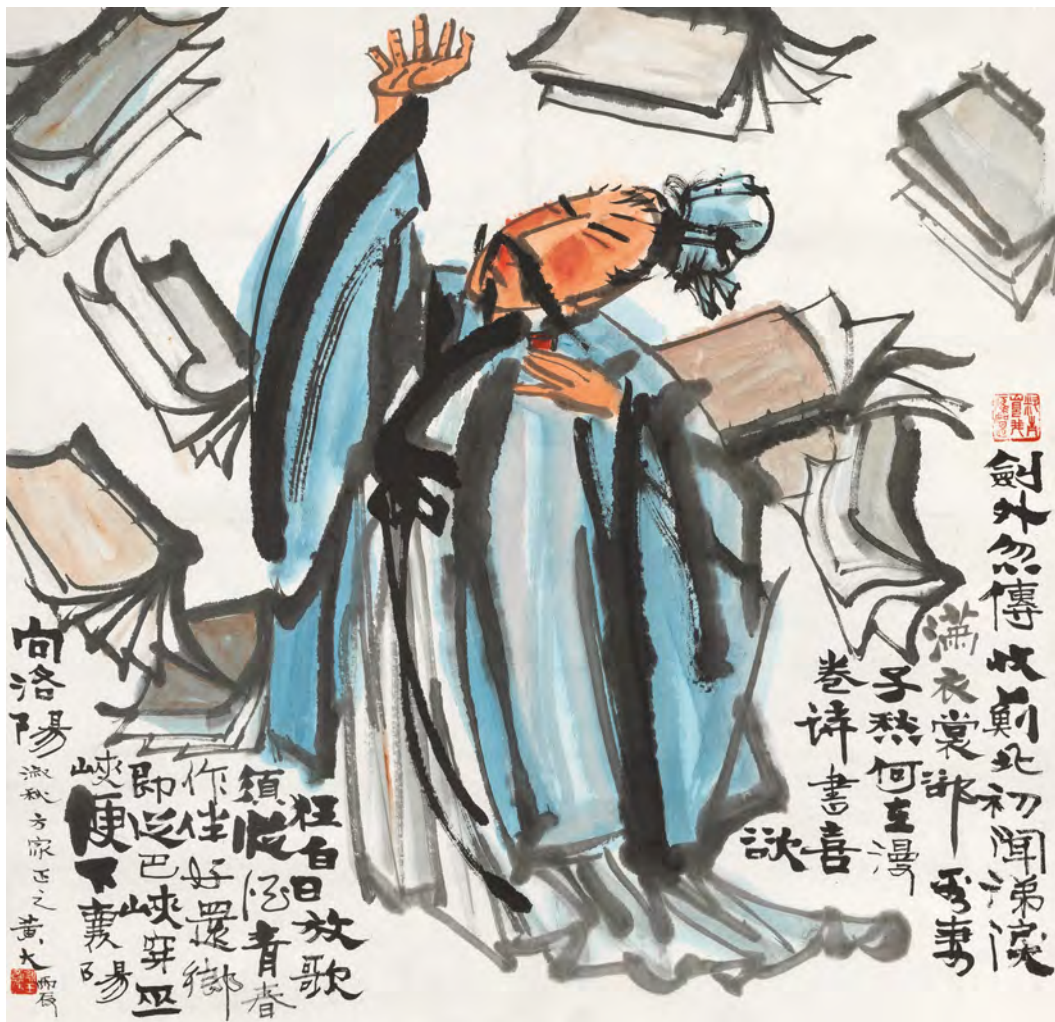 劍外忽傳收薊北初聞涕淚
滿衣裳卻看妻
子愁何在漫
卷詩書喜
欲
狂白日放歌
須縱酒青春
作伴好還鄉
即從巴峽穿巫
峽便下襄陽
向洛陽
淑秋方家正之 黃大
丙辰